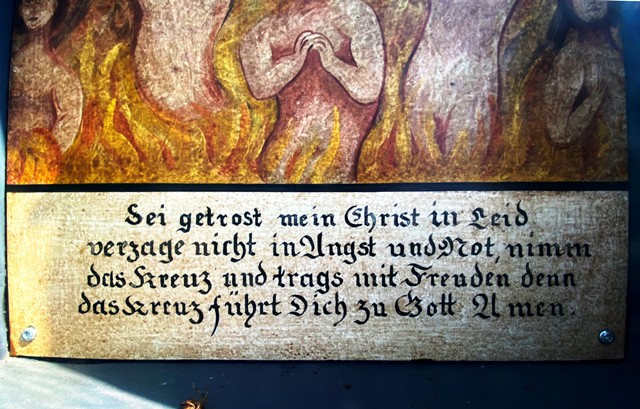 Sei getrost mein Christ in Leid
verzage nicht in Angst und Not, nimm
das Kreuz und trags mit Freuden denn
das Kreuz führt Dich zu Gott Amen.